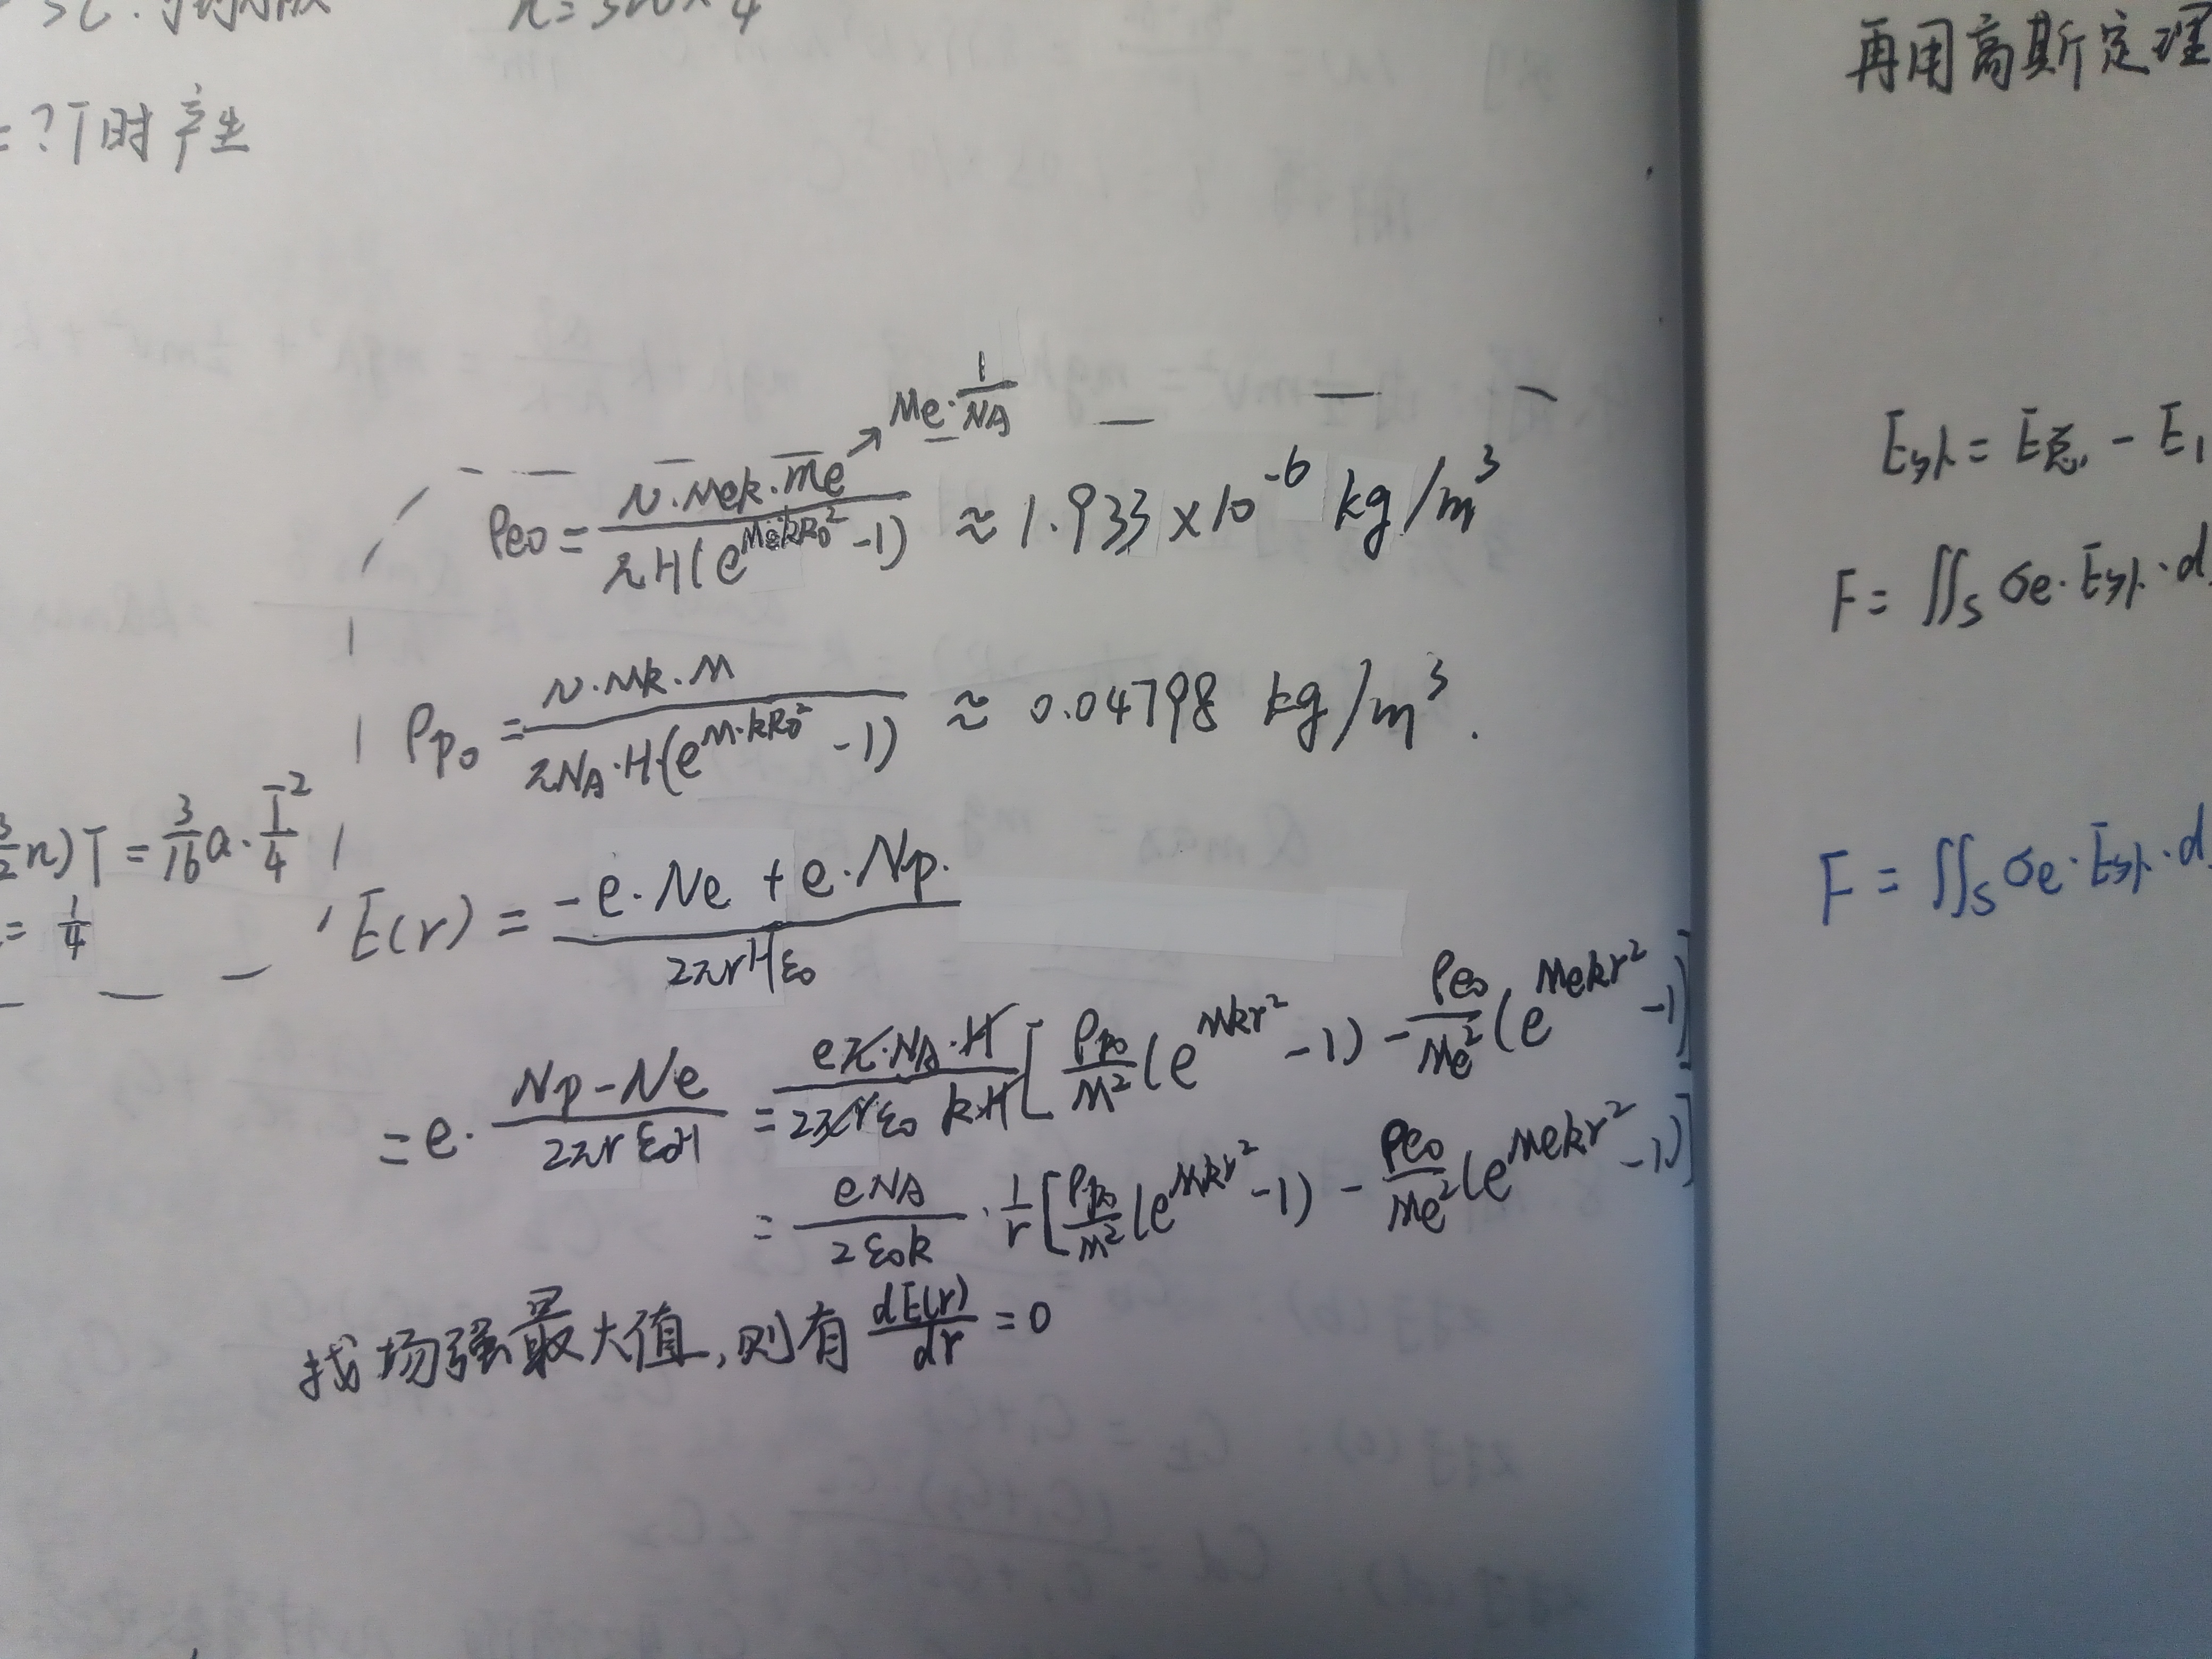 = ?T时产生
Me·1/NA
ρe0 = N·Mek·me / πH(e^{MekR0²}-1) ≈ 1.933×10^{-6} kg/m³
ρp0 = N·Mk·M / πNA·H·(e^{M·kR0²}-1) ≈ 0.04798 kg/m³.
n)T = 3/16 a·T²/4
= 1/4
E(r) = -e·Ne + e·Np. / 2πrHε0
= e· Np-Ne / 2πrε0H = eπ·NA·H / 2πrε0 kH [ρp0/M² (e^{Mkr²}-1) - ρe0/Me² (e^{Mekr²}-1)]
= eNA / 2ε0k · 1/r [ρp0/M² (e^{Mkr²}-1) - ρe0/Me² (e^{Mekr²}-1)]
找场强最大值,则有 dE(r)/dr = 0
再用高斯定理
E外 = E总 - E1
F = ∬S σe·E外·d
F = ∬S σe·E外·d